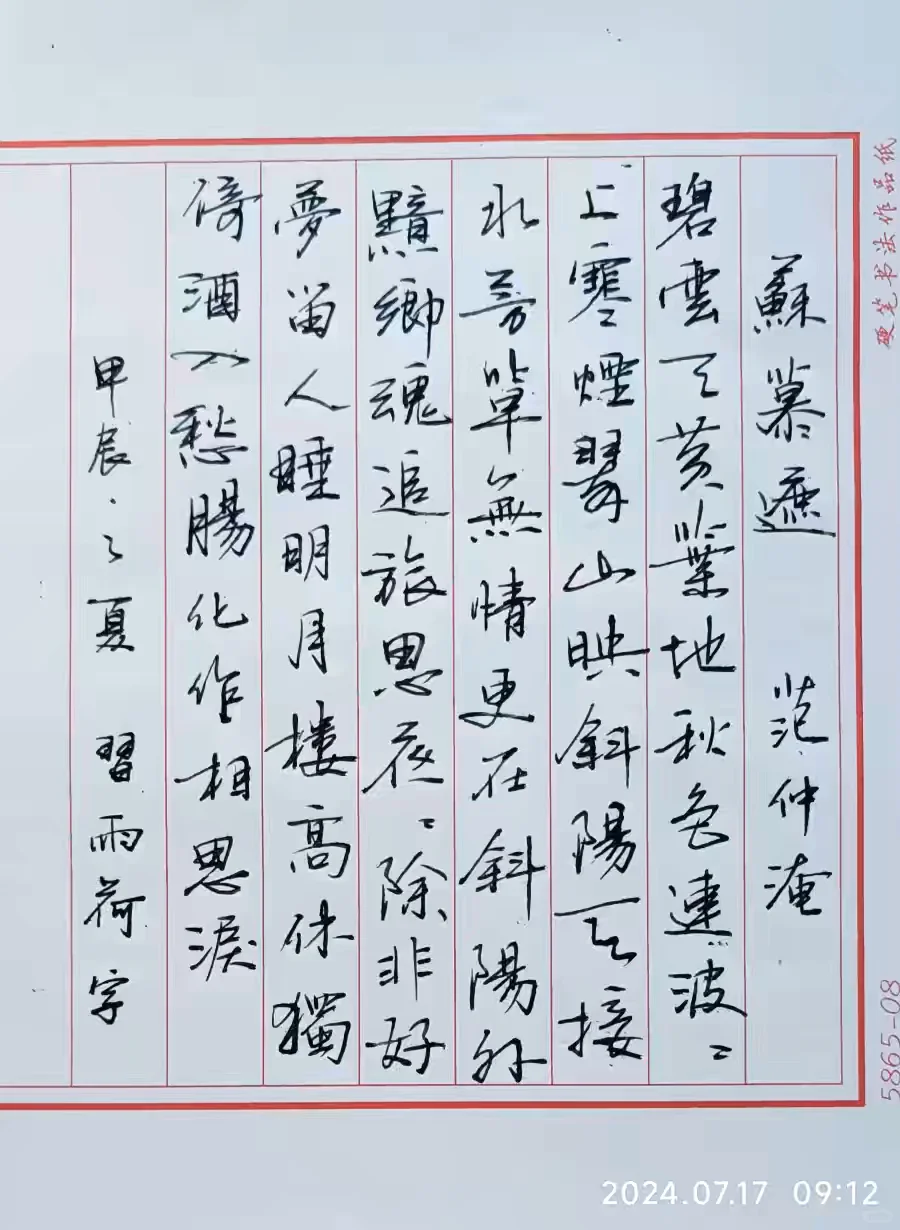 蘇幕遮 范仲淹
碧雲天黃葉地秋色連波〻
上寒煙翠山映斜陽天接
水芳草無情更在斜陽外
黯鄉魂追旅思夜〻除非好
夢留人睡明月樓高休獨
倚酒入愁腸化作相思淚
甲辰之夏 習雨荷字
硬笔书法作品纸
5865-08
2024.07.17 09:12